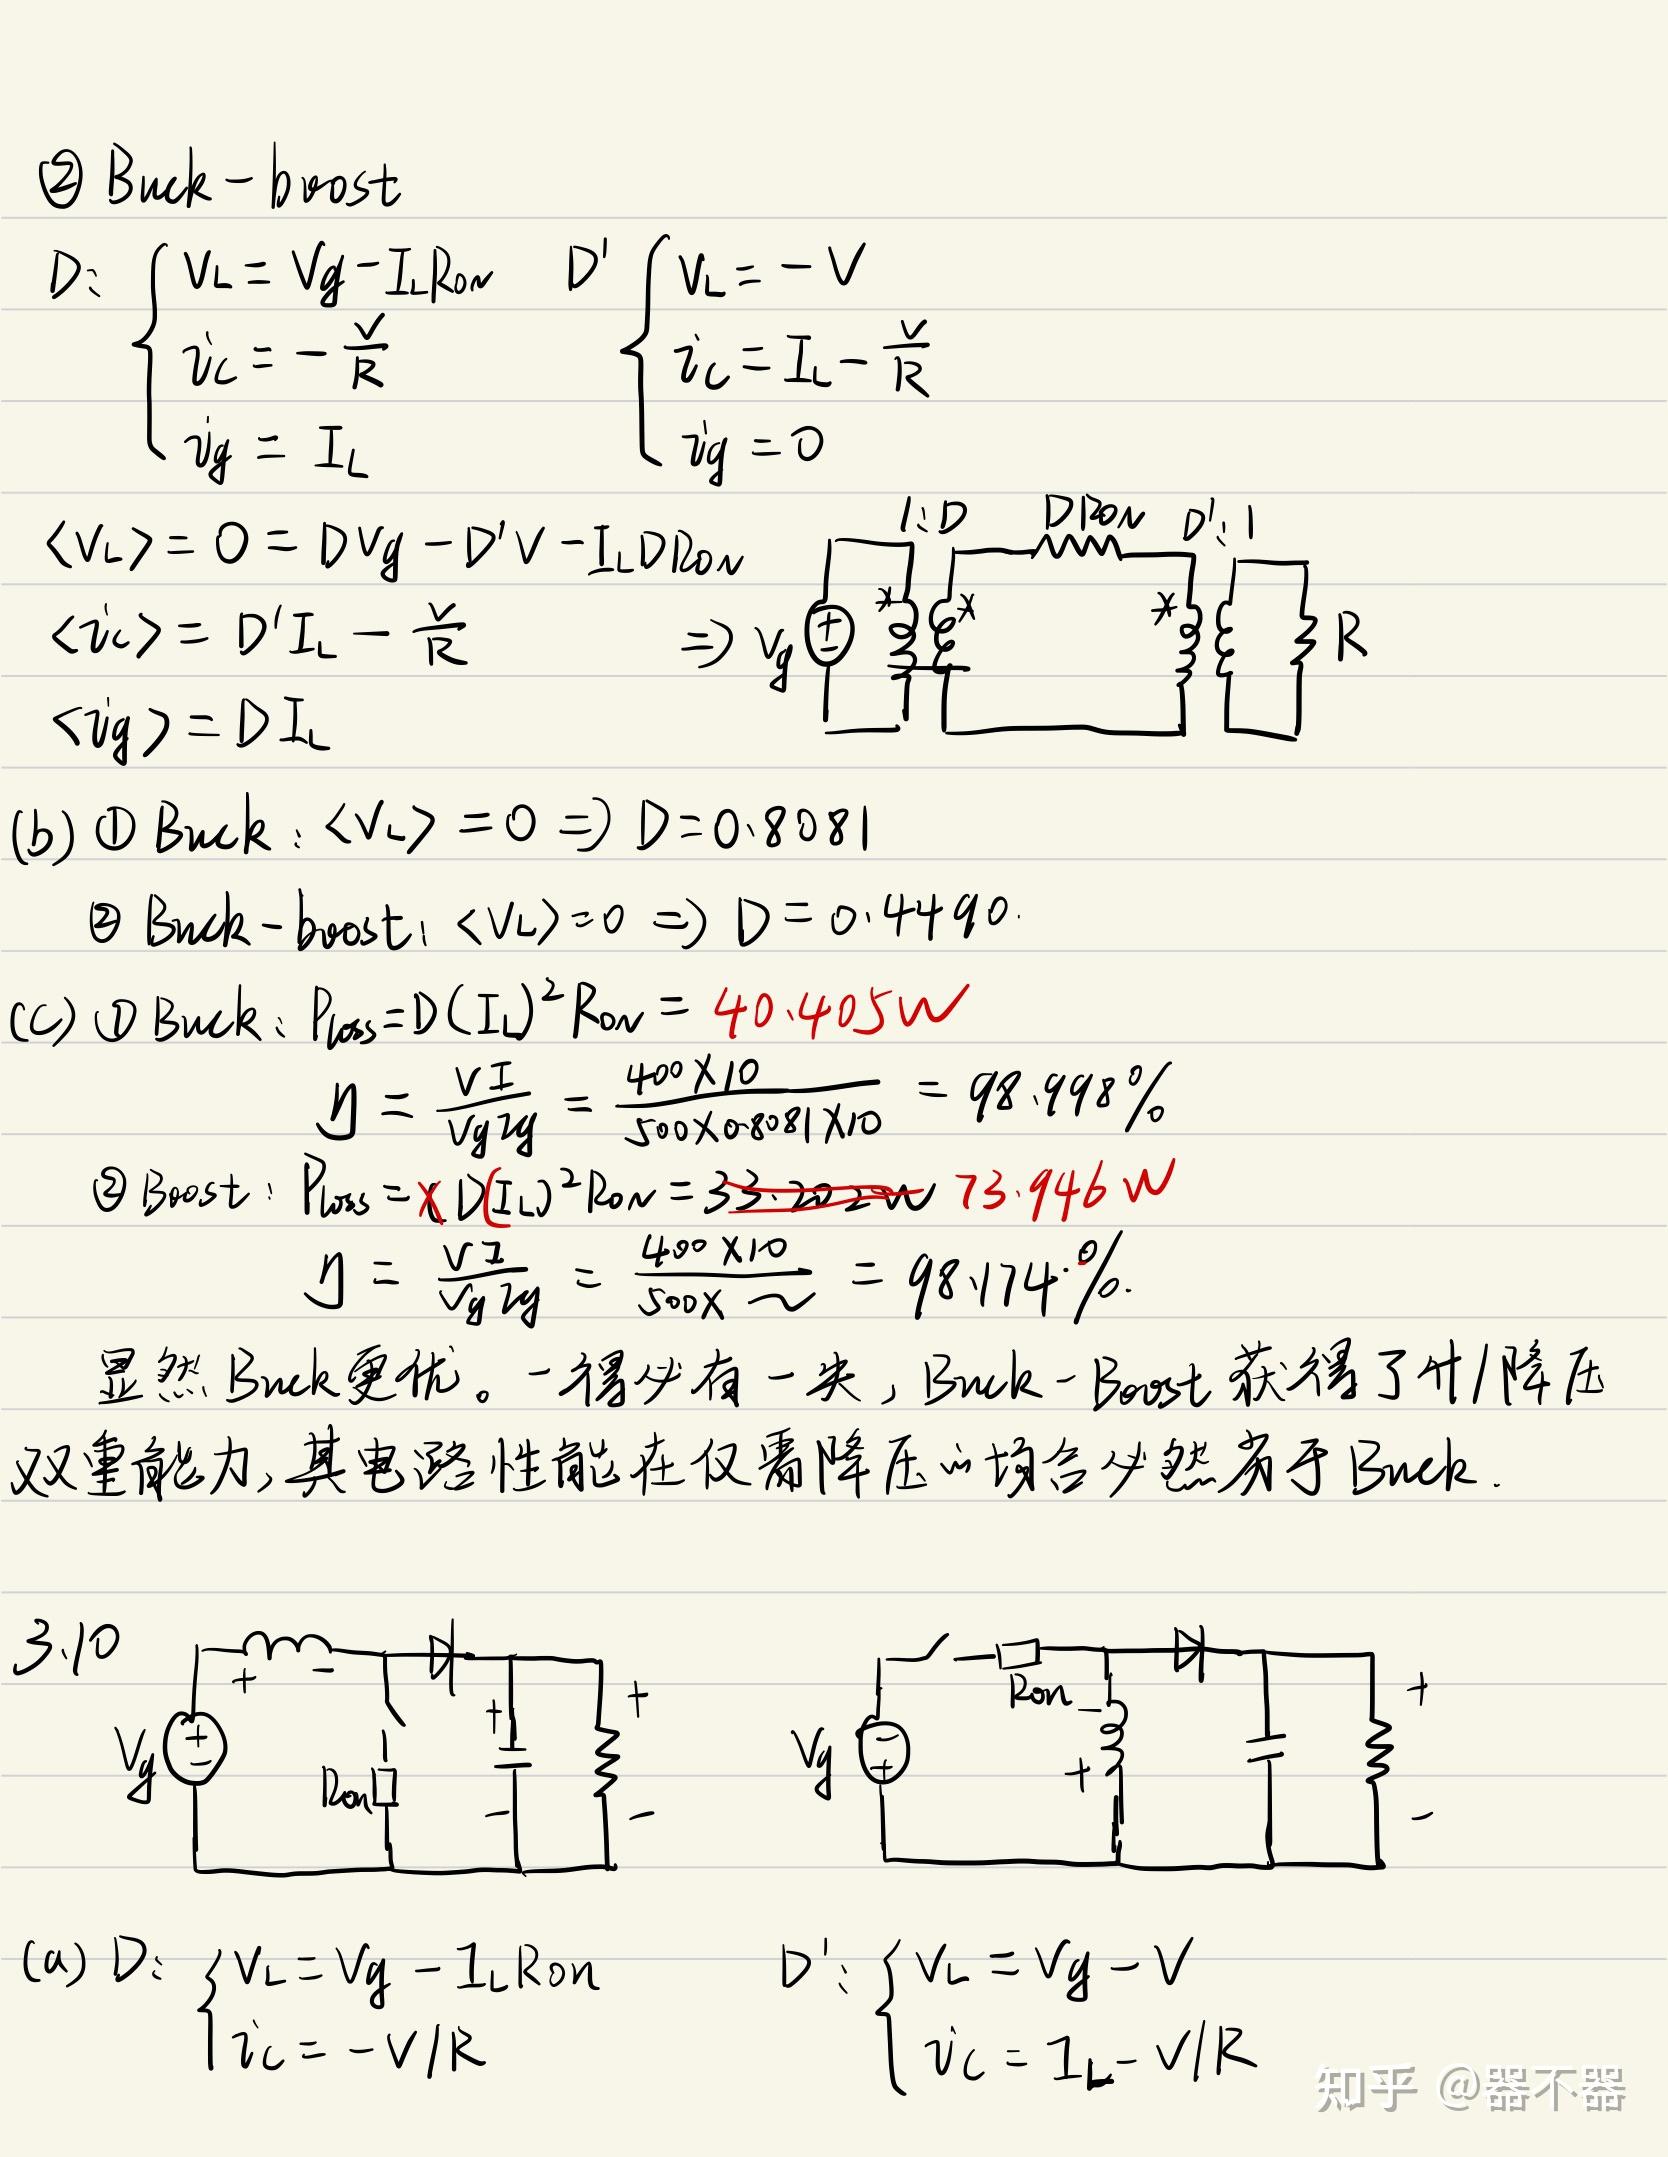 ② Buck-boost
D: { V_L = Vg - I_L R_ON   D' { V_L = -V
i_c = - V/R   i_c = I_L - V/R
i_g = I_L   i_g = 0
1:D   D R_ON   D':1
<V_L> = 0 = DVg - D'V - I_L D R_ON
<i_c> = D'I_L - V/R   ⇒ Vg   R
<i_g> = D I_L
(b) ① Buck: <V_L> = 0 ⇒ D = 0.8081
② Buck-boost: <V_L> = 0 ⇒ D = 0.4490.
(c) ① Buck: P_loss = D(I_L)² R_ON = 40.405W
η = VI / Vg Ig = 400×10 / 500×0.8081×10 = 98.998%
② Boost: P_loss = D(I_L)² R_ON = 33.202W 73.946W
η = VI / Vg Ig = 400×10 / 500×~ = 98.174%.
显然Buck更优。一得必有一失,Buck-Boost获得了升/降压
双重能力,其电路性能在仅需降压的场合必然劣于Buck.
3.10
+ -   + -   + -   Vg   Ron   Vg   Ron   - +   + -
(a) D: { V_L = Vg - I_L Ron   D': { V_L = Vg - V
i_c = -V/R   i_c = I_L - V/R
知乎 @器不器